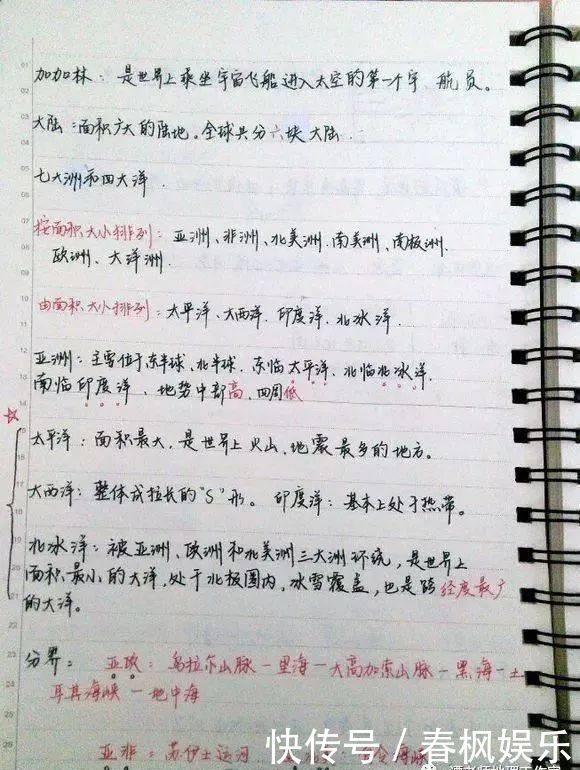 加加林：是世界上乘坐宇宙飞船进入太空的第一个宇航员。
大陆：面积广大的陆地。全球共分六块大陆
七大洲和四大洋.
按面积大小排列：亚洲、非洲、北美洲.南美洲、南极洲.
欧洲、大洋洲
由面积大小排列：太平洋、大西洋.印度洋、北冰洋.
亚洲：主要位于东半球、北半球.东临太平洋、北临北冰洋.
南临印度洋、地势中部高.四周低
太平洋：面积最大.是世界上火山、地震最多的地方。
大西洋：整体成拉长的"S"形。印度洋：基本上处于热带。
北冰洋：被亚洲、欧洲和北美洲三大洲环绕，是世界上
面积最小的大洋，处于北极圈内，冰雪覆盖，也是跨经度最广
的大洋。
分界：亚欧：乌拉尔山脉－里海－大高加索山脉－黑海－土
耳其海峡－地中海
亚非：苏伊士运河
快传号／春风娱乐